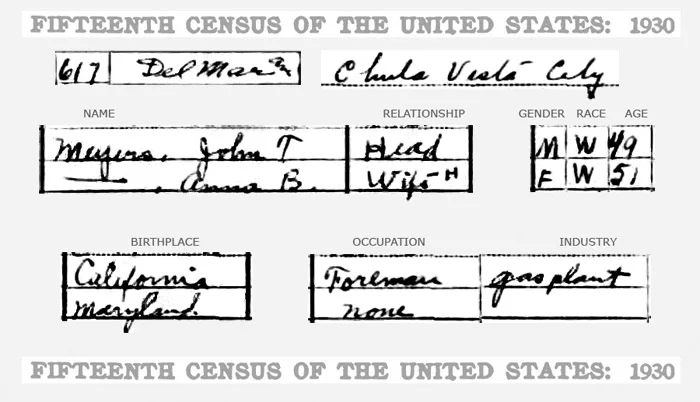 FIFTEENTH CENSUS OF THE UNITED STATES: 1930
617 Del Mar Chula Vista City
NAME RELATIONSHIP GENDER RACE AGE
Meyers, John T Head M W 49
—, Anna B. Wife H F W 51
BIRTHPLACE OCCUPATION INDUSTRY
California Foreman gas plant
Maryland. none
FIFTEENTH CENSUS OF THE UNITED STATES: 1930